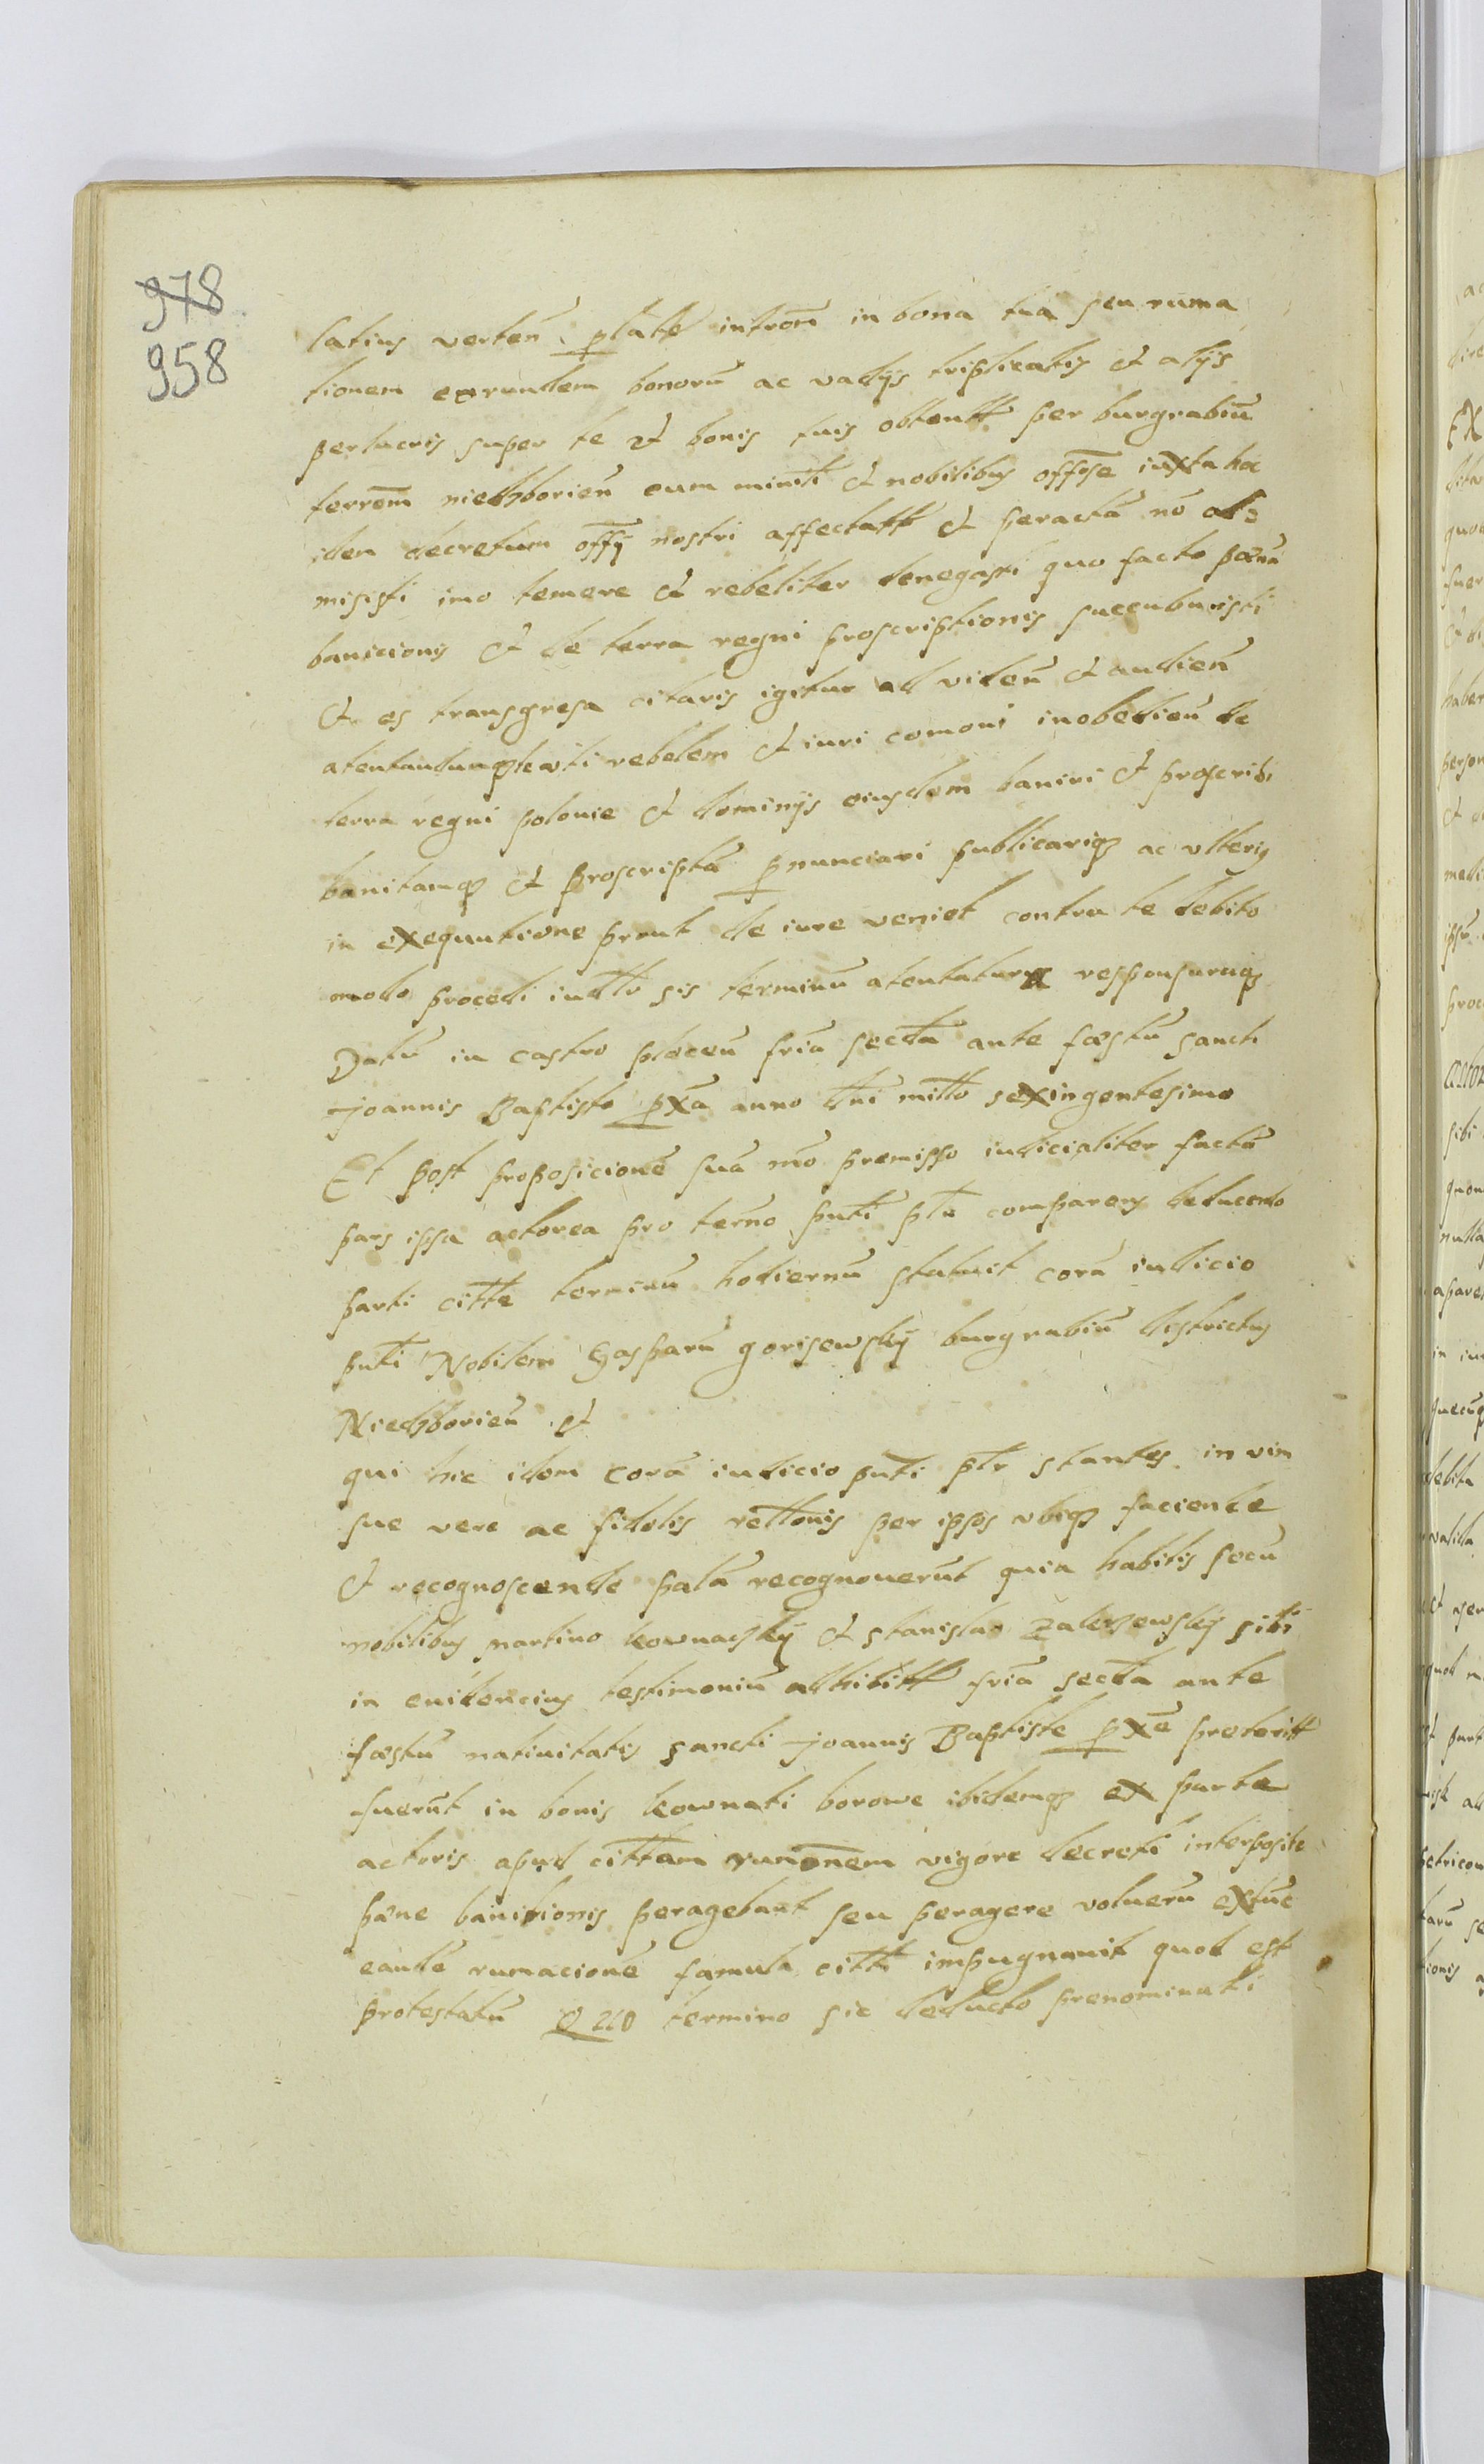 978
958
latius verten̄ p̱latē introm̄ in bona tua seu ruma
tionem eorundem bonorū ac vadijs triplicatis et alijs
perlucris super te et bonis tuis obtentt per burgrabiū
terren̄m niedzborien̄ cum minrlī et nobilibus offōse iuxta hoc
idem decretum offy nostri affectatt et peractā nō ad=
misisti imo temere et rebeliter denegasti quo facto pœnā
banicionis et de terra regni proscriptionis succubuisti
et es transgresa citaris igitur ad viden̄ et audien̄
atentandumqз rebelem et iuri comoni inobedien̄ de
terra regni polonie et dominijs eiusdem baniri et proscribi
banitamqз et proscriptā pnunciari publicariqз ac vlterius
in exequutione prout de iure veniet contra te debito
modo procedi iudtr sis terminū atentatura responsuraqз
Datū in castro plocen̄ friā sectā ante fæstū sancti
Joannis Baptiste pxā anno dn̄i millo sexingentesimo
Et post proposicionē suā mō premisso iudicialiter factā
pars ipsa actorea pro termo pn̄ti ptr comparens deducendo
parti citte terminū hodiernū statuit corā iudicio
pn̄ti Nobilem Gasparū gorisewskÿ burgrabiū destrictus
Niedzborien̄ et
qui hic idem corā iudicio pn̄ti ptr stantes in vim
sue vere ac fidelis rellonis per ipsos vbiqз faciende
et recognoscende palā recognouerūt quia habitis secū
nobilibus martino kownaczkÿ et stanislao Zaleszewskÿ sibi
in euidencius testimoniū adhibitt friā sectā ante
fæstū natiuitatis sancti Joannis Baptiste pxē preteritt
fuerūt in bonis kownati borowe ibidemqз ex parte
actoris apud cittam rumōnem vigore decreti interposite
pæne banitionis peragebant seu peragere voluerū extūc
eandē rumacionē famula citti impugnauit quod est
protestatū Quo termino sic deducto prenominati